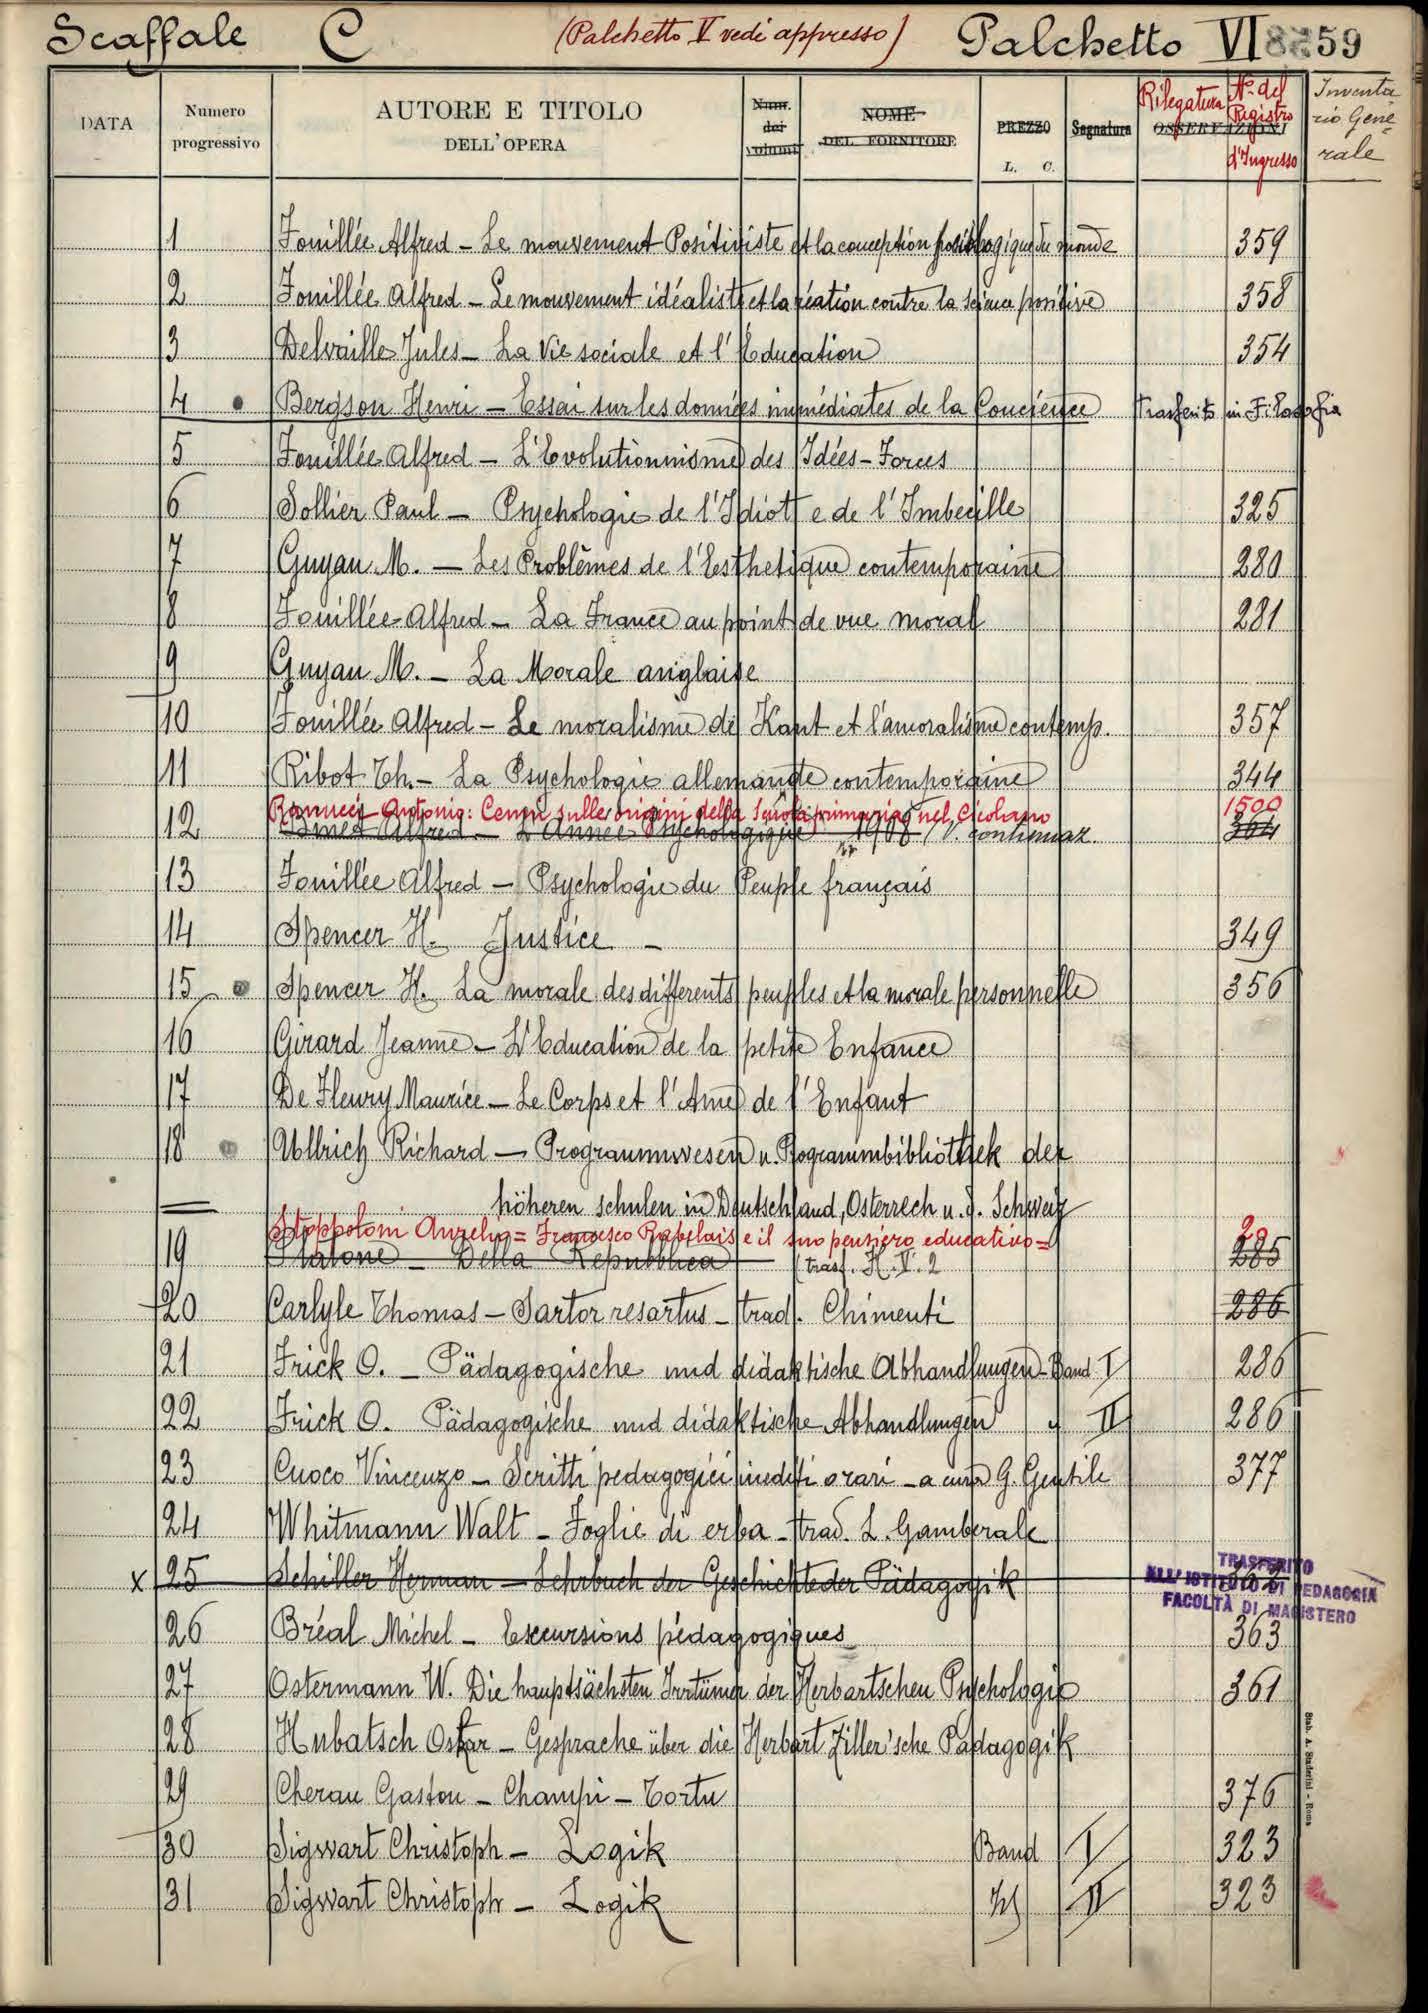 Scaffale C (Palchetto V vedi appresso) Palchetto VI 59
DATA Numero progressivo AUTORE E TITOLO DELL'OPERA Num. dei volumi NOME DEL FORNITORE PREZZO L. C. Segnatura OSSERVAZIONI Rilegatura N.° del Registro d'Ingresso Inventario Generale
1 Fouillée Alfred – Le mouvement Positiviste et la conception sociologique du monde 359
2 Fouillée Alfred – Le mouvement idéaliste et la réation contre la science positive 358
3 Delvaille Jules – La Vie sociale et l'Éducation 354
4 Bergson Henri – Essai sur les données immédiates de la Concience Trasferito in Filosofia
5 Fouillée Alfred – L'Evolutionnisme des Idées-Forces
6 Sollier Paul – Psychologie de l'Idiot e de l'Imbecille 325
7 Guyau M. – Les Problêmes de l'Esthetique contemporaine 280
8 Fouillée Alfred – La France au point de vue moral 281
9 Guyau M. – La Morale anglaise
10 Fouillée Alfred – Le moralisme de Kant et l'amoralisme contemp. 357
11 Ribot Th. – La Psychologie allemande contemporaine 344
Ranucci Antonio: Cenni sulle origini della Scuola primaria nel Cicolano 1500
12 Binet Alfred – L'Année Psychologique 1908 V. continuaz. 364
13 Fouillée Alfred – Psychologie du Peuple français
14 Spencer H. Justice – 349
15 Spencer H. La morale des differents peuples et la morale personnelle 356
16 Girard Jeanne – L'Education de la petite Enfance
17 De Fleury Maurice – Le Corps et l'Ame de l'Enfant
18 Ullrich Richard – Programmwesen u. Programmbibliothek der
höheren schulen in Deutschland, Osterrech u. d. Schweiz
Stoppoloni Aurelio = Francesco Rabelais e il suo pensiero educativo = 29
19 Platone – Della Repubblica (trasf. H. V. 2 285
20 Carlyle Thomas – Sartor resartus – trad. Chimenti 286
21 Frick O. – Pädagogische und didaktische Abhandlungen – Band I 286
22 Frick O. Pädagogische und didaktische Abhandlungen " II 286
23 Cuoco Vincenzo – Scritti pedagogici inediti o rari – a cura G. Gentile 377
24 Whitmann Walt – Foglie di erba – trad. L. Gamberale
x 25 Schiller Herman – Lehrbuch der Geschichte der Pädagogik 362
TRASFERITO
ALL'ISTITUTO DI PEDAGOGIA
FACOLTÀ DI MAGISTERO
26 Bréal Michel – Excursions pédagogiques 363
27 Ostermann W. Die hauptsächsten Irrtümer der Herbartschen Psychologie 361
28 Hubatsch Oskar – Gesprache über die Herbart Ziller'sche Pädagogik
29 Cherau Gaston – Champi – Tortu 376
30 Sigwart Christoph – Logik Band I 323
31 Sigwart Christoph – Logik Id II 323
Stab. A. Staderini - Roma